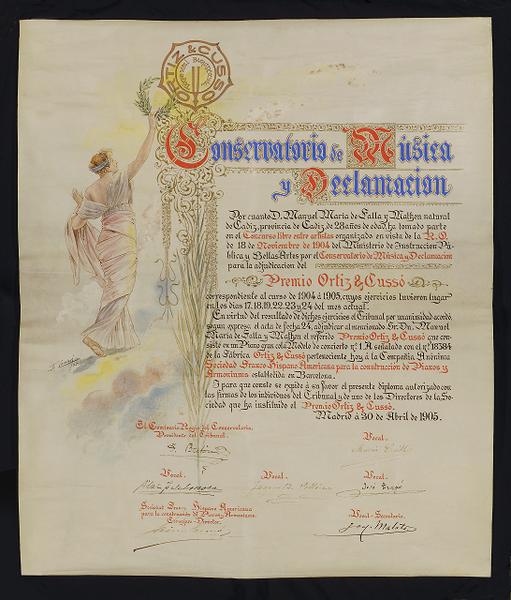 ORTIZ & CUSSÓ
Conservatorio de Música
y Declamacion
Por cuanto D. Manuel María de Falla y Mathen natural
de Cádiz, provincia de Cadiz, de 28 años de edad, ha tomado parte
en el Concurso libre entre artistas organizado en vista de la R.O.
de 18 de Noviembre de 1904 del Ministerio de Instruccion Pú-
blica y Bellas Artes por el Conservatorio de Música y Declamacion
para la adjudicacion del
Premio Ortiz & Cussó
correspondiente al curso de 1904 á 1905, cuyos ejercicios tuvieron lugar
en los dias 17, 18, 19, 22, 23 y 24 del mes actual.
En virtud del resultado de dichos ejercicios el Tribunal por unanimidad acordó,
segun expresa el acta de fecha 24, adjudicar al mencionado Sr. Dn. Manuel
María de Falla y Mathen el referido Premio Ortiz & Cussó que con-
siste en un Piano gran cola Modelo de concierto nº 1. A señalado con el nº 18384
de la Fábrica Ortiz & Cussó perteneciente hoy á la Compañia Anónima
Sociedad Franco Hispano Americana para la construccion de Pianos y
Armoniums establecida en Barcelona.
Y para que conste se expide á su favor el presente diploma autorizado con
las firmas de los individuos del Tribunal y de uno de los Directores de la So-
ciedad que ha instituido el Premio Ortiz & Cussó.
Madrid á 30 de Abril de 1905.
El Comisario Regio del Conservatorio.
Presidente del Tribunal.
Vocal.
Vocal.
Vocal.
Vocal.
José Tragó
Sociedad Franco Hispano Americana
para la construcción de Pianos y Armoniums.
Consejero-Director.
Vocal-Secretario.